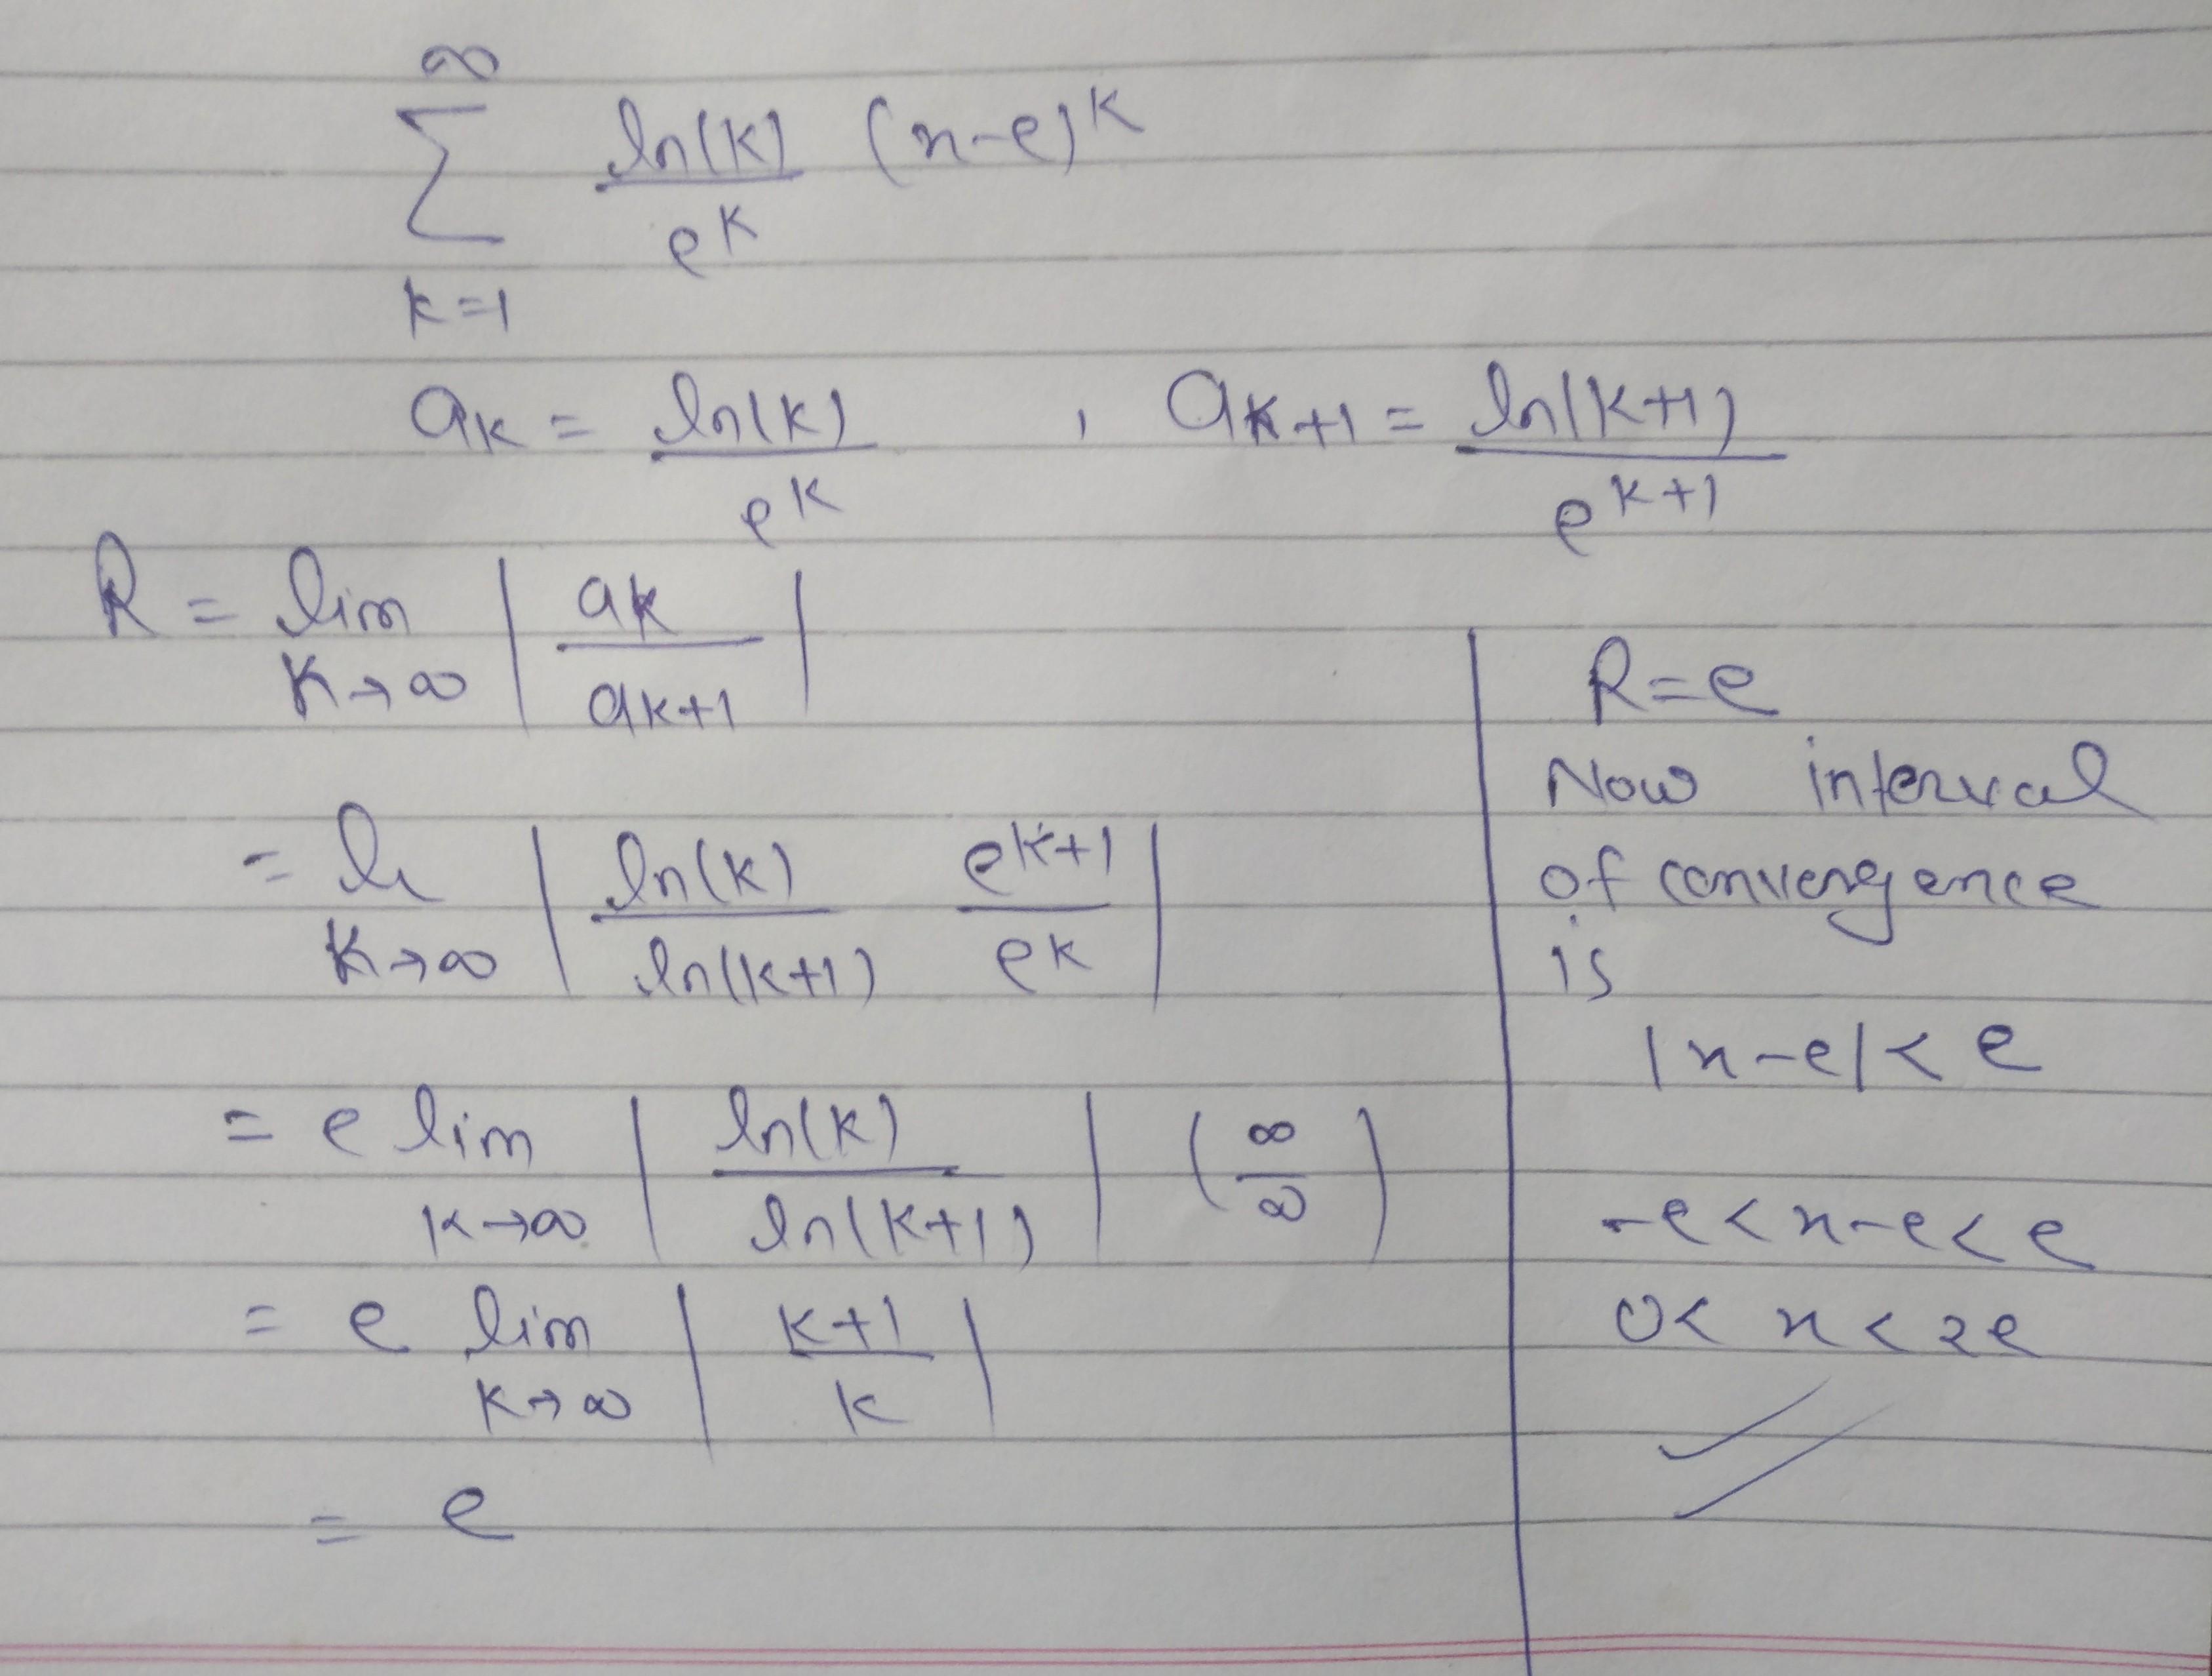 ∞
∑ ln(k)/e^k (x-e)^k
k=1
a_k = ln(k)/e^k , a_{k+1} = ln(k+1)/e^{k+1}
R = lim_{k→∞} | a_k/a_{k+1} |
= li_{k→∞} | ln(k)/ln(k+1) e^{k+1}/e^k |
= e lim_{k→∞} | ln(k)/ln(k+1) | (∞/∞)
= e lim_{k→∞} | k+1/k |
= e
R=e
Now interval
of convergence
is
|x-e|<e
-e<x-e<e
0<x<2e